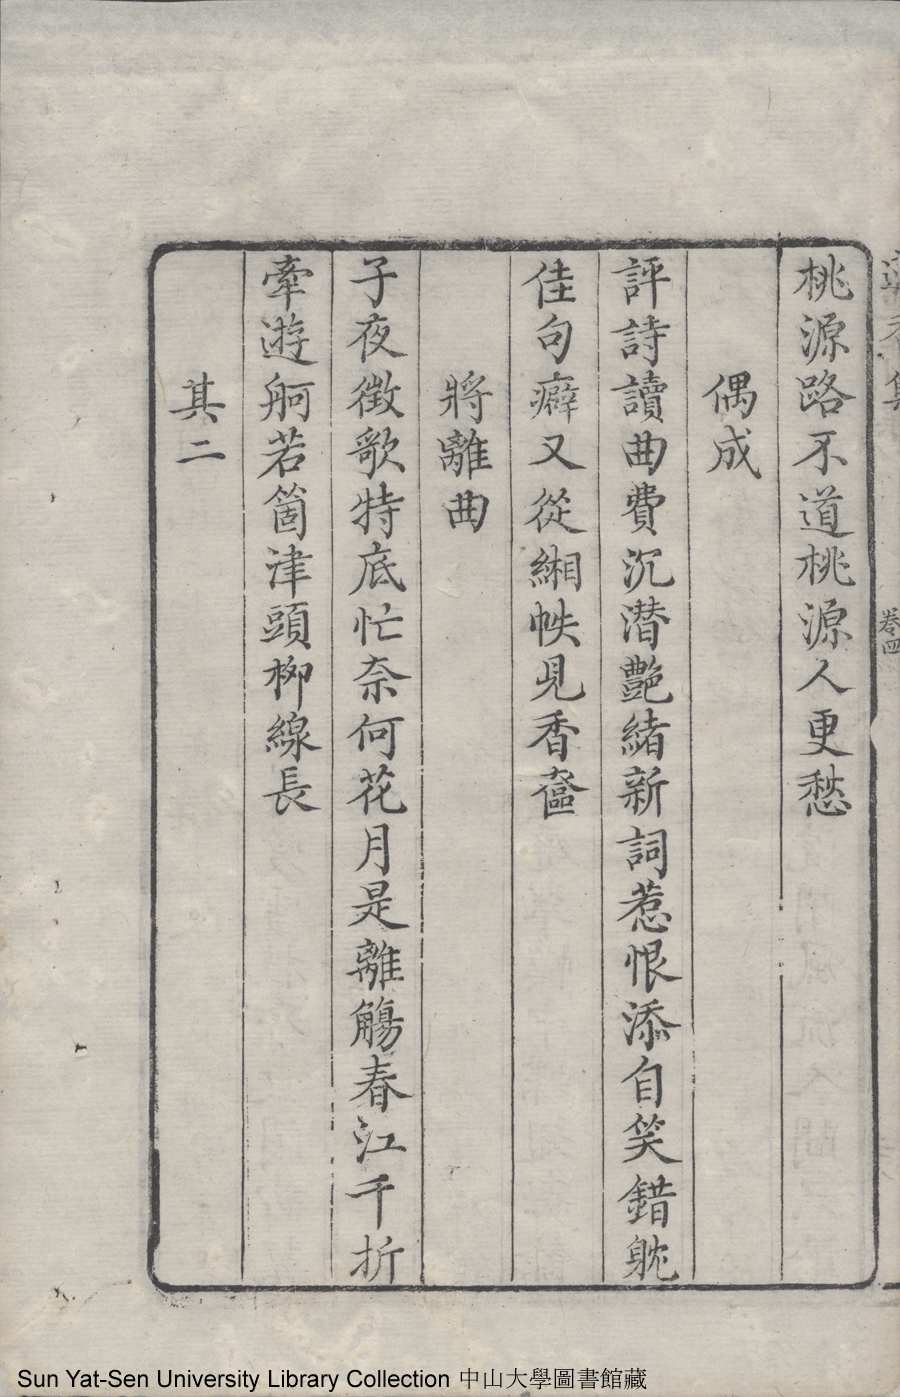 桃源路不道桃源人更愁
偶成
評詩讀曲費沉潜艷緒新詞惹恨添自笑錯躭
佳句癖又從緗帙見香奩
將離曲
子夜徵歌特底忙奈何花月是離觴春江千折
牽遊舸若箇津頭柳線長
其二
卷四
Sun Yat-Sen University Library Collection 中山大學圖書館藏